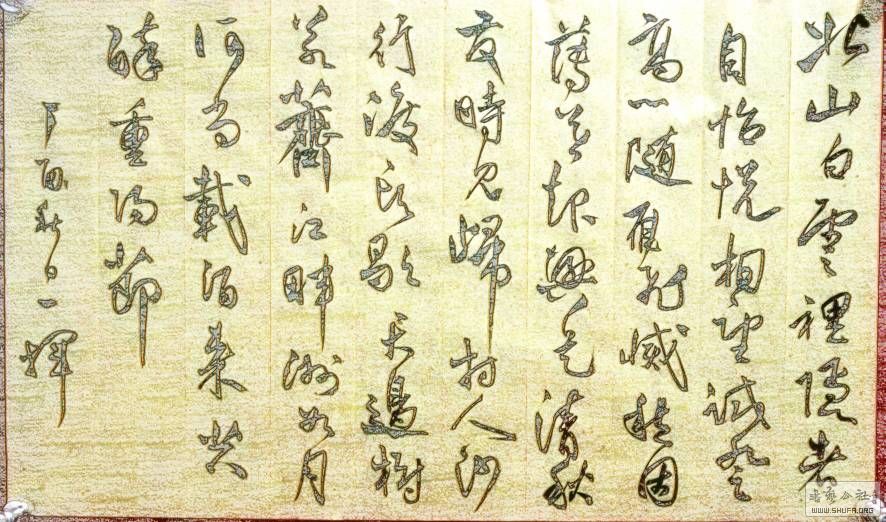 北山白雲裡隱者
自怡悅相望試登
高心隨雁飛滅愁因
薄暮起興是清秋
發時見歸村人沙
行渡頭歇天邊樹
若薺江畔洲如月
何當載酒來共
醉重陽節
酉秋日一輝
書藝公社
WWW.SHUFA.ORG